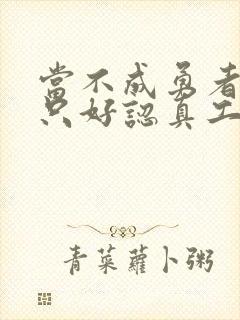 當不成勇者
只好認真工
青菜蘿卜粥